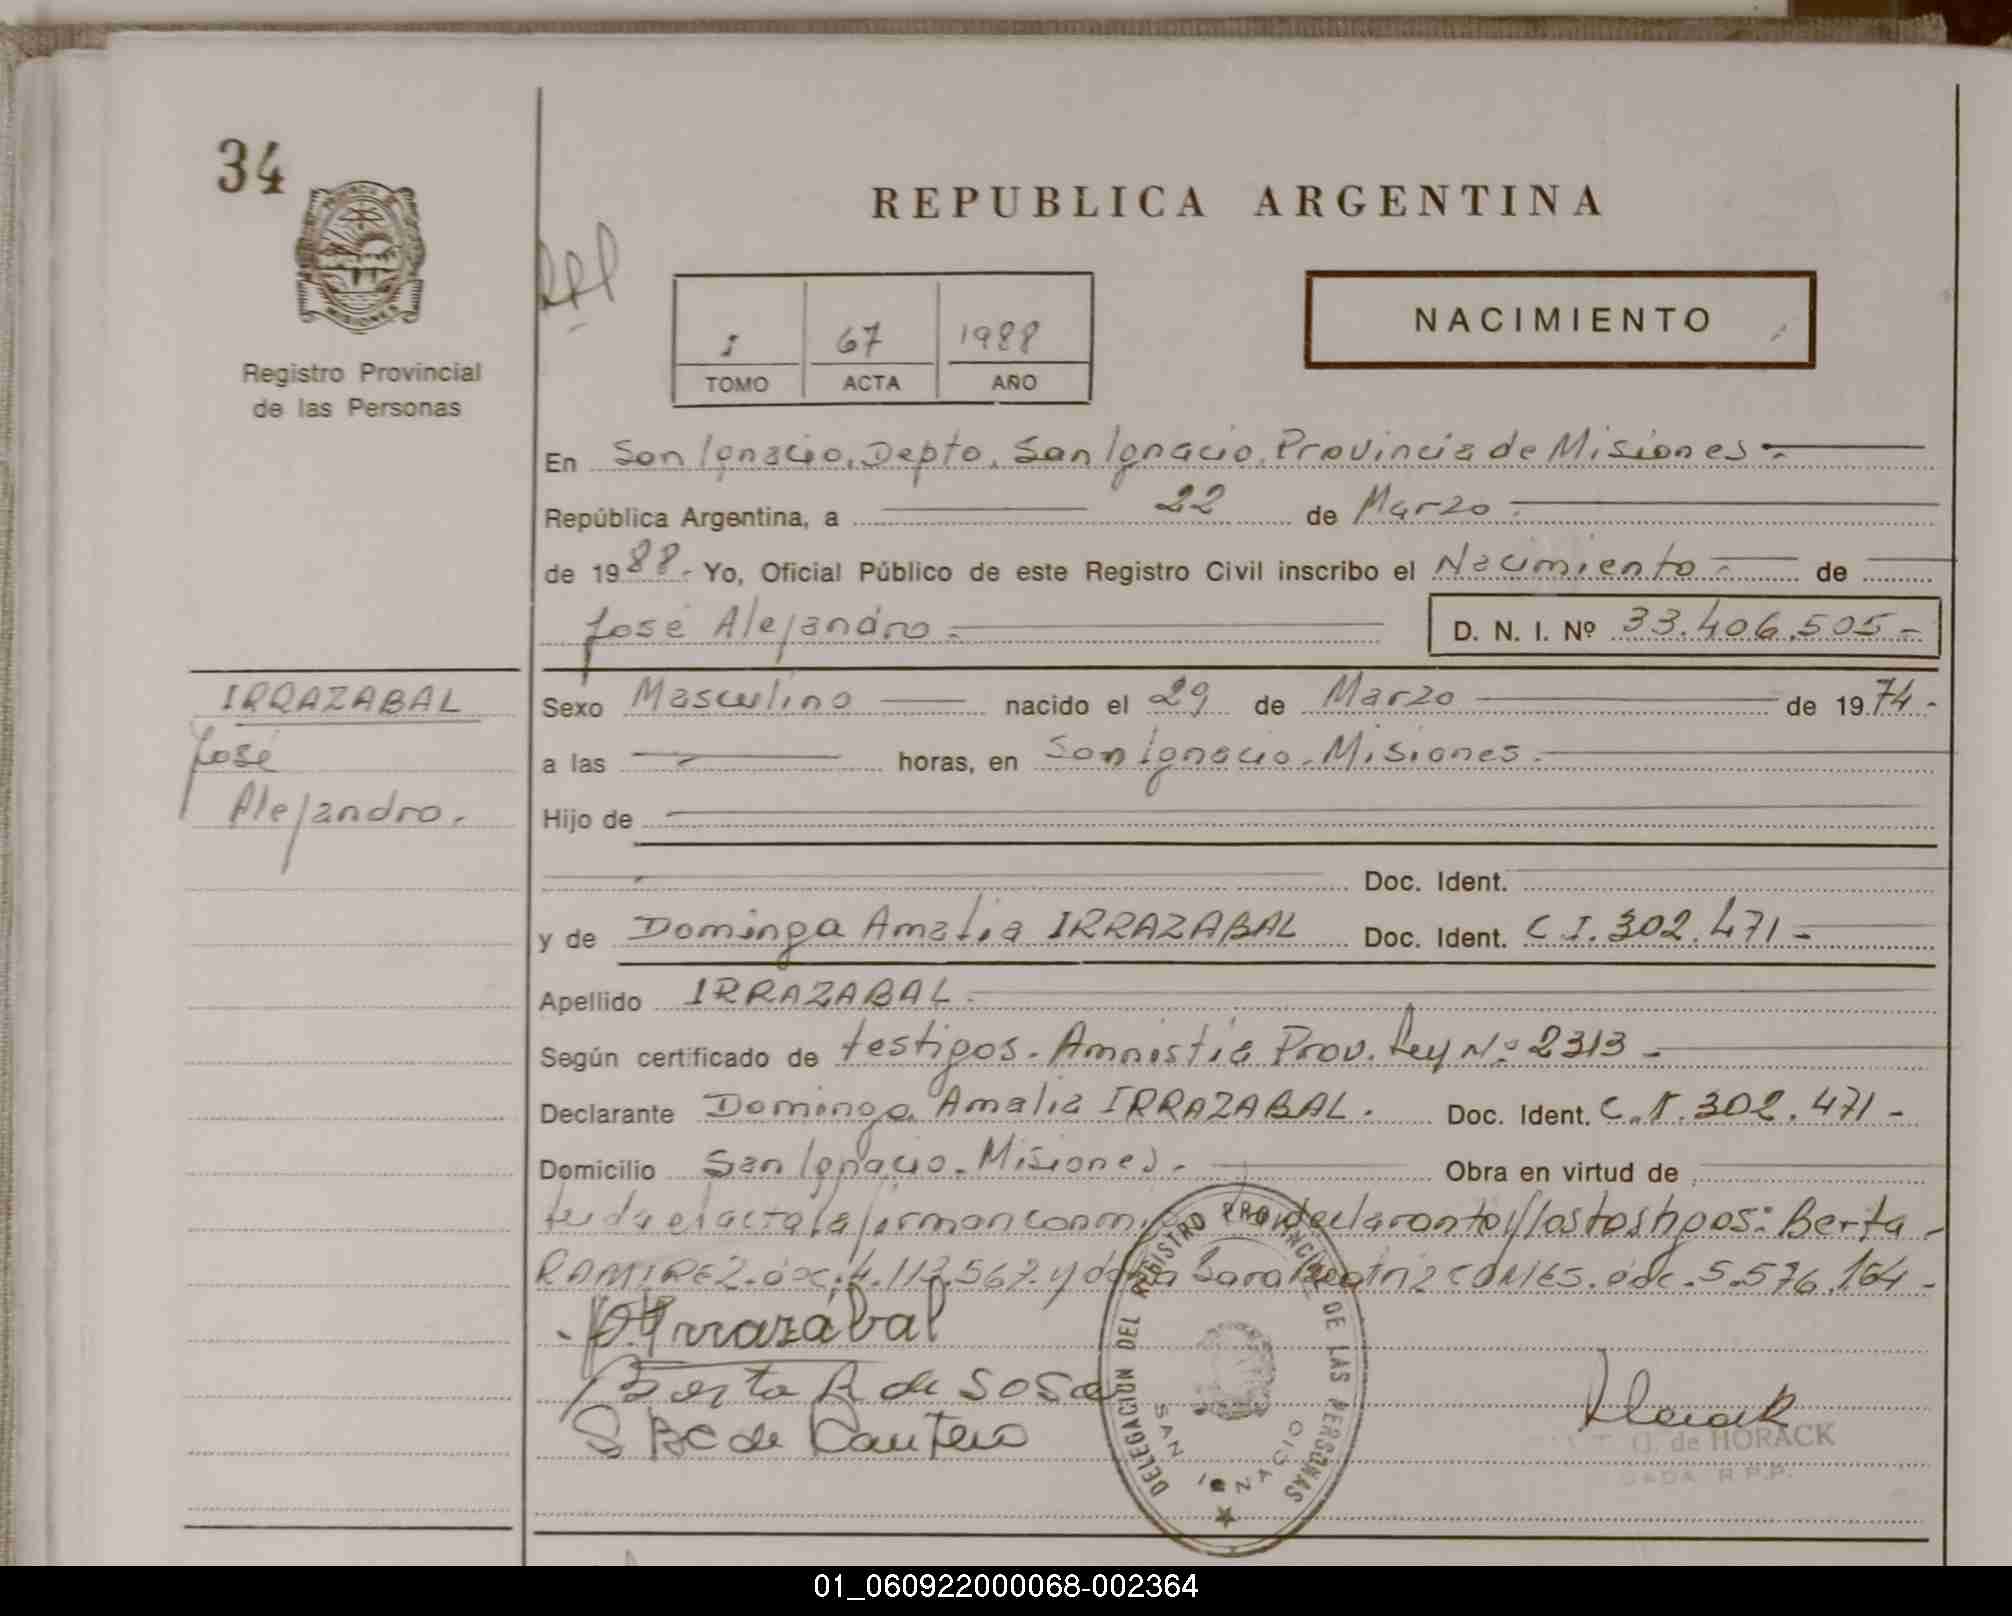 34
MISIONES
Registro Provincial
de las Personas
REPUBLICA ARGENTINA
I 67 1988
TOMO ACTA AÑO
NACIMIENTO
En San Ignacio, Depto. San Ignacio. Provincia de Misiones -
República Argentina, a 22 de Marzo -
de 1988 - Yo, Oficial Público de este Registro Civil inscribo el Nacimiento - de
José Alejandro - D. N. I. Nº 33.406.505 -
IRRAZABAL
José
Alejandro.
Sexo Masculino nacido el 29 de Marzo de 1974 -
a las horas, en San Ignacio. Misiones.
Hijo de
Doc. Ident.
y de Dominga Amalia IRRAZABAL Doc. Ident. C.I. 302.471 -
Apellido IRRAZABAL.
Según certificado de testigos. Amnistía Prov. Ley Nº 2313 -
Declarante Dominga Amalia IRRAZABAL. Doc. Ident. C.I. 302.471 -
Domicilio San Ignacio. Misiones. - Obra en virtud de
leida el acta la firman declarante y los testigos: Berta -
RAMIREZ. doc. 4.113.567. y Sara Beatriz doc. 5.576.164 -
D. Irrazábal
Berta R de Sosa
S BC de Cantero
DELEGACION DEL REGISTRO PROVINCIAL DE LAS PERSONAS
SAN IGNACIO
G. de HORACK
R.P.P.
01_060922000068-002364